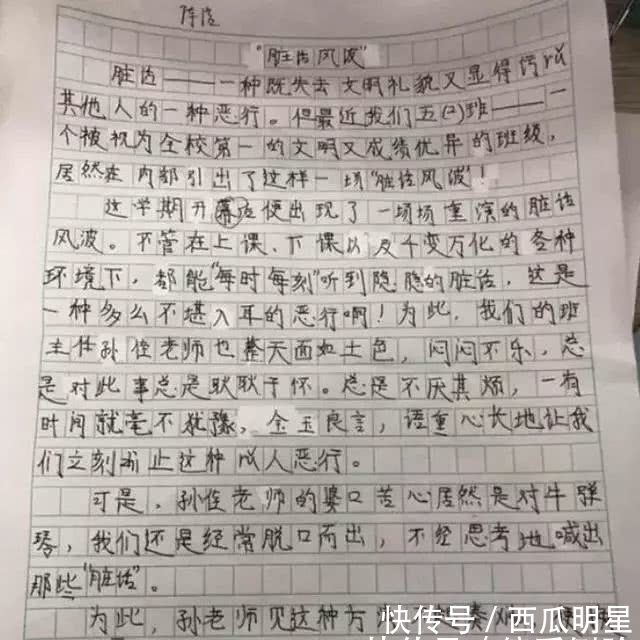 "脏话风波"
脏话——一种既失去文明礼貌又显得
其他人的一种恶行。但最近我们五(2)班——一
个被视为全校第一的文明又成绩优异的班级，
居然在内部引出了这样一场"脏话风波"！
这学期开幕后便出现了一场场重演的脏话
风波。不管在上课、下课以及千变万化的各种
环境下，都能"每时每刻"听到隐隐的脏话，这是
一种多么不堪入耳的恶行啊！为此，我们的班
主任孙佳老师也整天面如土色，闷闷不乐，总
是对此事总是耿耿于怀。总是不厌其烦，一有
时间就毫不犹豫，金玉良言，语重心长地让我
们立刻制止这种人恶行。
可是，孙佳老师的婆口苦心居然是对牛弹
琴，我们还是经常脱口而出，不经思考地喊出
那些"脏话"。
为此，孙老师见这种方
快传号／西瓜明星